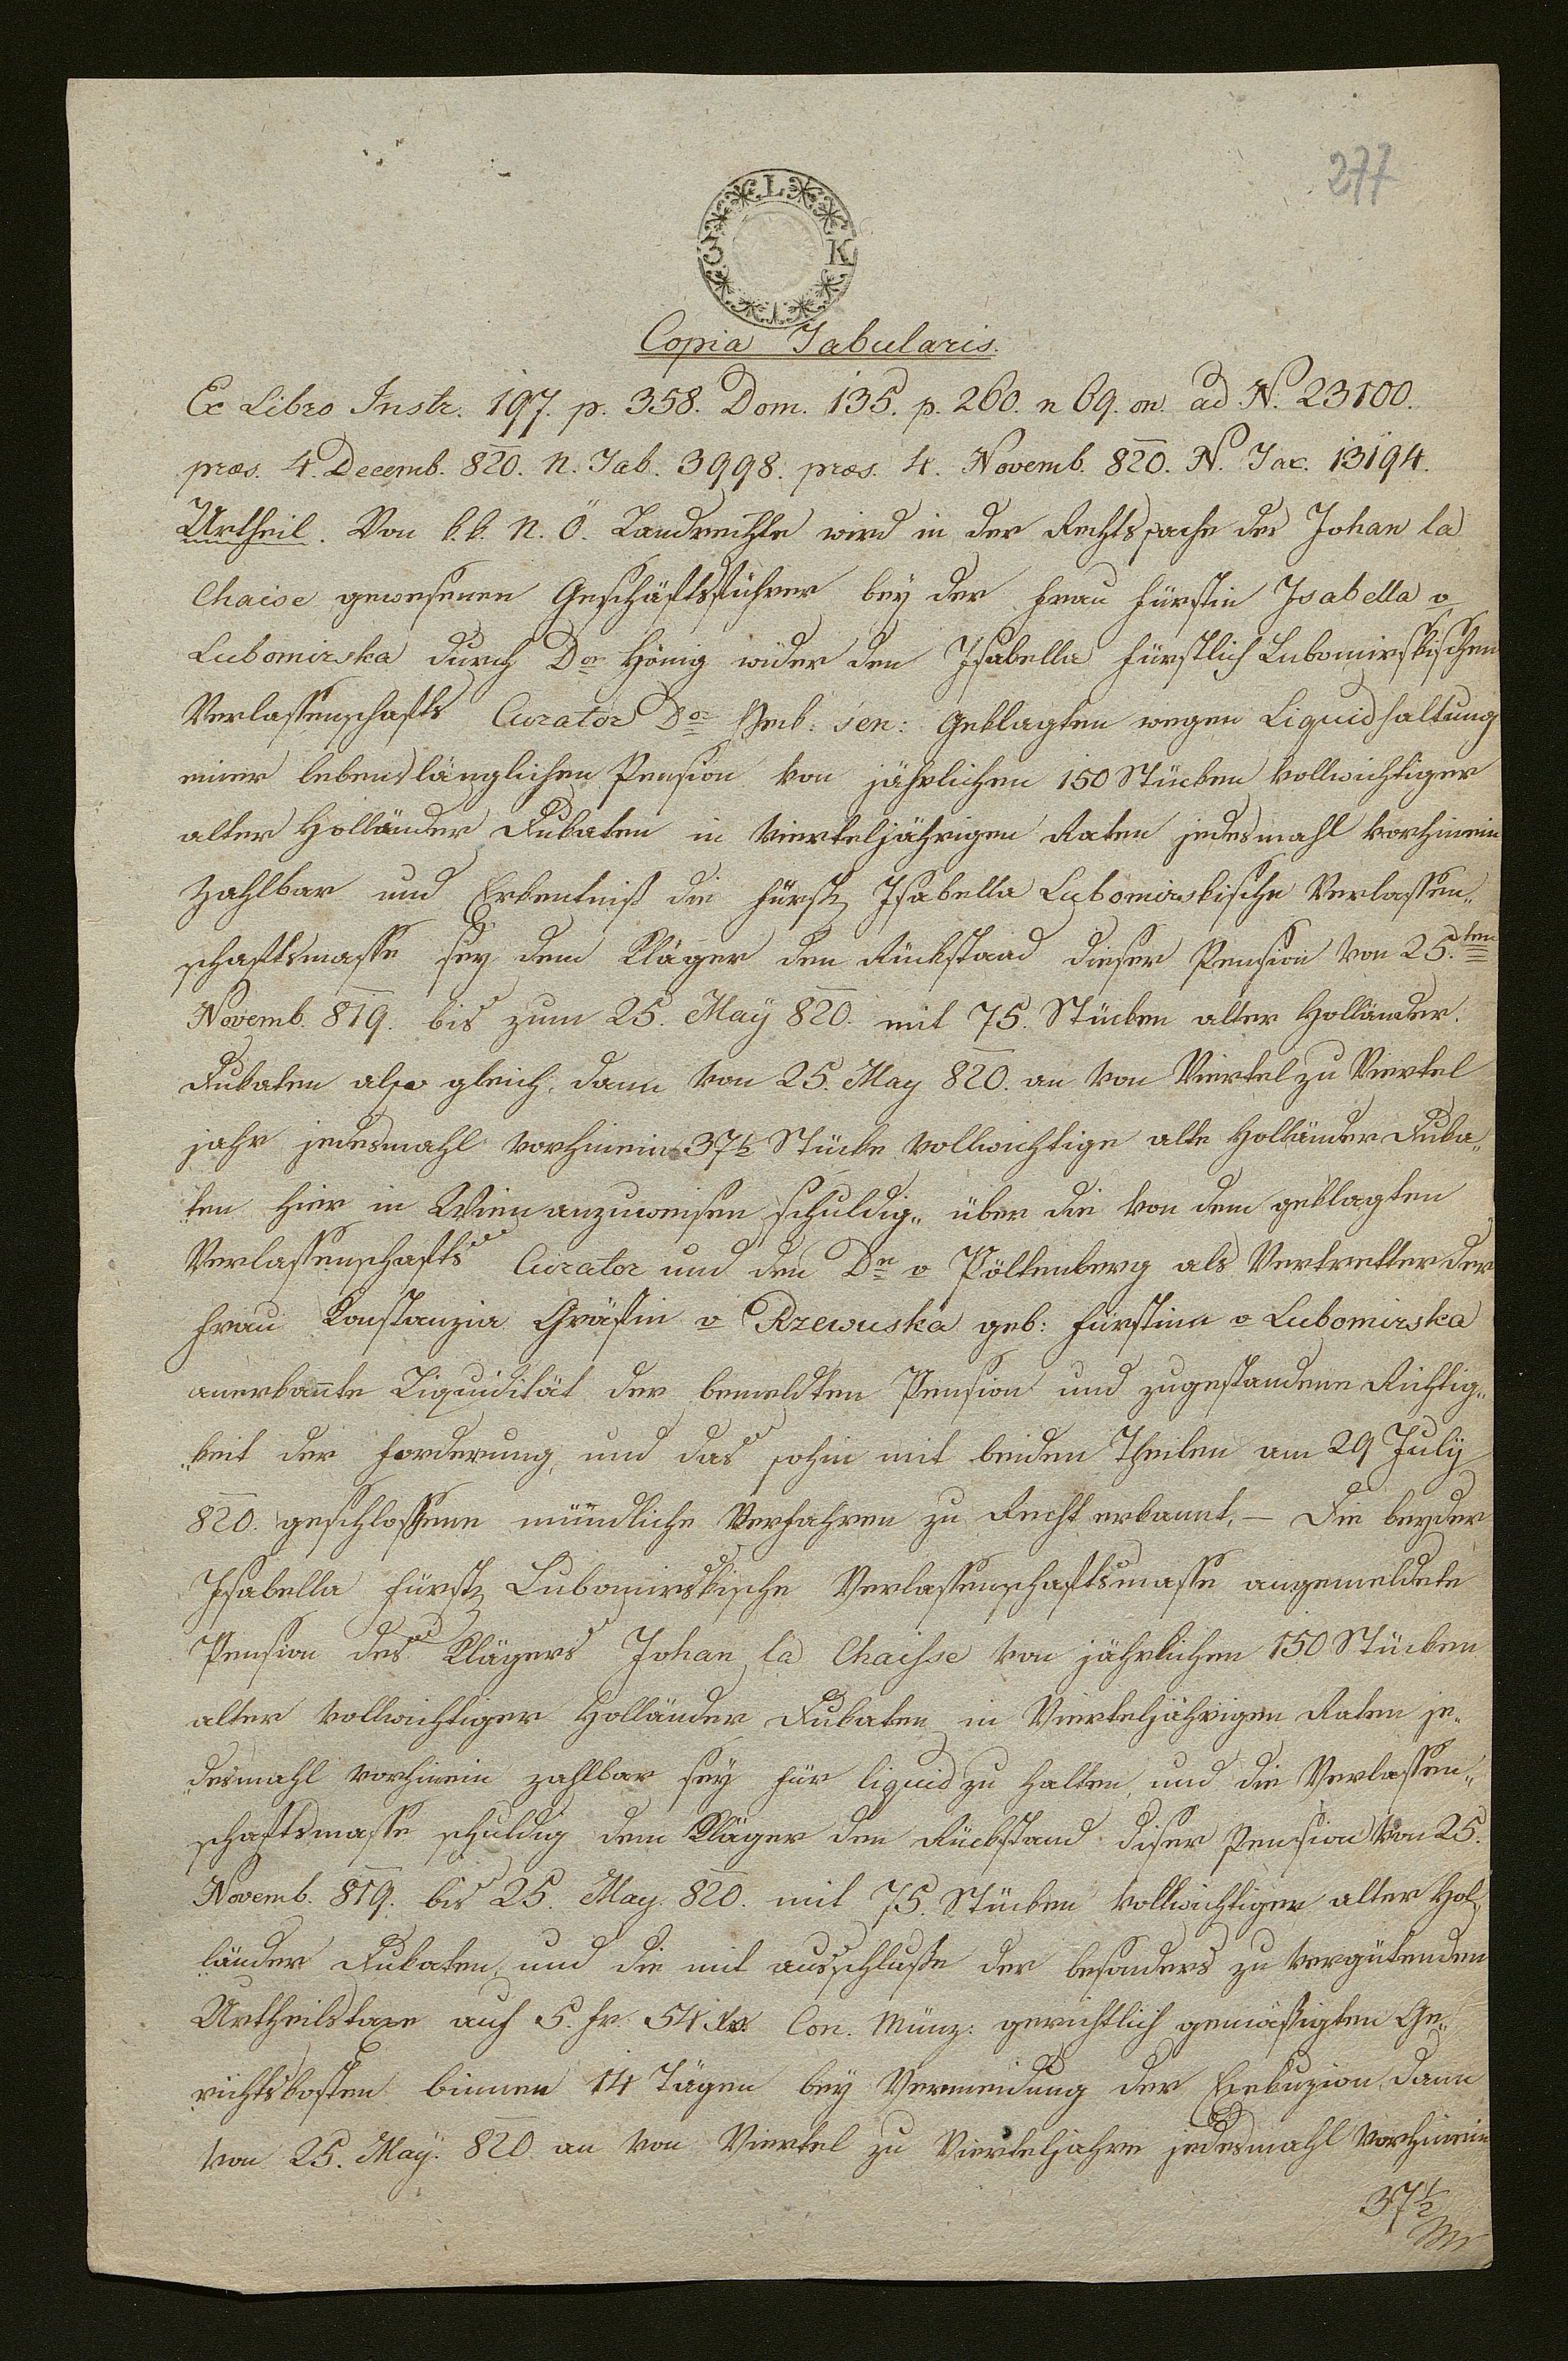 277
3 L K
Copia Tabularis.
Ex Libro Instr. 197. p. 358. Dom. 135. p. 260. n 69. on. ad N. 23100.
præs. 4. Decemb. 820. N. Tab. 3998. præs. 4. Novemb. 820. N. Tax. 13194.
Urtheil. Von k. k. N. Ö. Landrechte wird in der Rechtssache des Johan la
Chaise gewesenen Geschäftsführer bey der Frau Fürstin Isabella v
Lubomirska durch Dor Hönig wider den Isabella fürstlich Lubomirskischen
Verlassenschafts Curator Dor sen: Geklagten wegen Liquidhaltung
einer lebenslänglichen Pension von jährlichen 150 Stücken vollwichtiger
alter Holländer Dukaten in vierteljährigen Raten jedesmahl vorhinein
zahlbar und Erkentniß die fürstl Isabella Lubomirskische Verlassen„
schaftsmasse sey dem Kläger den Rückstand dieser Pension von 25.ten
Novemb. 819. bis zum 25. Maÿ 820. mit 75. Stücken alter Holländer.
Dukaten also gleich, dann von 25. May 820. an von Viertel zu Viertel
jahr jedesmahl vorhinein 37½ Stücke vollwichtige alte Holländer Duka„
„ten hier in Wien anzuweisen schuldig„ über die von dem geklagten
Verlassenschafts Curator und den Dr v Pöltenberg als Vertretter der
Frau Konstanzia Gräfin v Rzewuska geb: Fürstinn v Lubomirska
anerkannte Liquidität der bemeldten Pension und zugestandene Richtig„
„keit der Forderung, und das sohin mit beiden Theilen am 29 July
820. geschlossene mündliche Verfahren zu Recht erkannt, – Die bey der
Isabella fürstl Lubomirskische Verlassenschaftsmasse angemeldete
Pension des Klägers Johan la Chaisse von jährlichen 150 Stücken
alter vollwichtiger Holländer Dukaten in Vierteljährigen Raten je„
„desmahl vorhinein zahlbar sey für liquid zu halten, und die Verlassen„
schaftsmasse schuldig dem Kläger den Rückstand diser Pension von 25.
Novemb. 819. bis 25. May. 820. mit 75. Stücken vollwichtiger alter Hol„
„länder Dukaten, und die mit ausschluße der besonders zu vergütenden
Urtheilstaxe auf 5. fr. 54 xr. Con. Münz: gerichtlich gemäßigten Ge„
richtskosten binnen 14 Tägen bey Vermeidung der Exekuzion, dann
von 25. Maÿ. 820 an von Viertel zu Vierteljahre jedesmahl vorhinein
37½